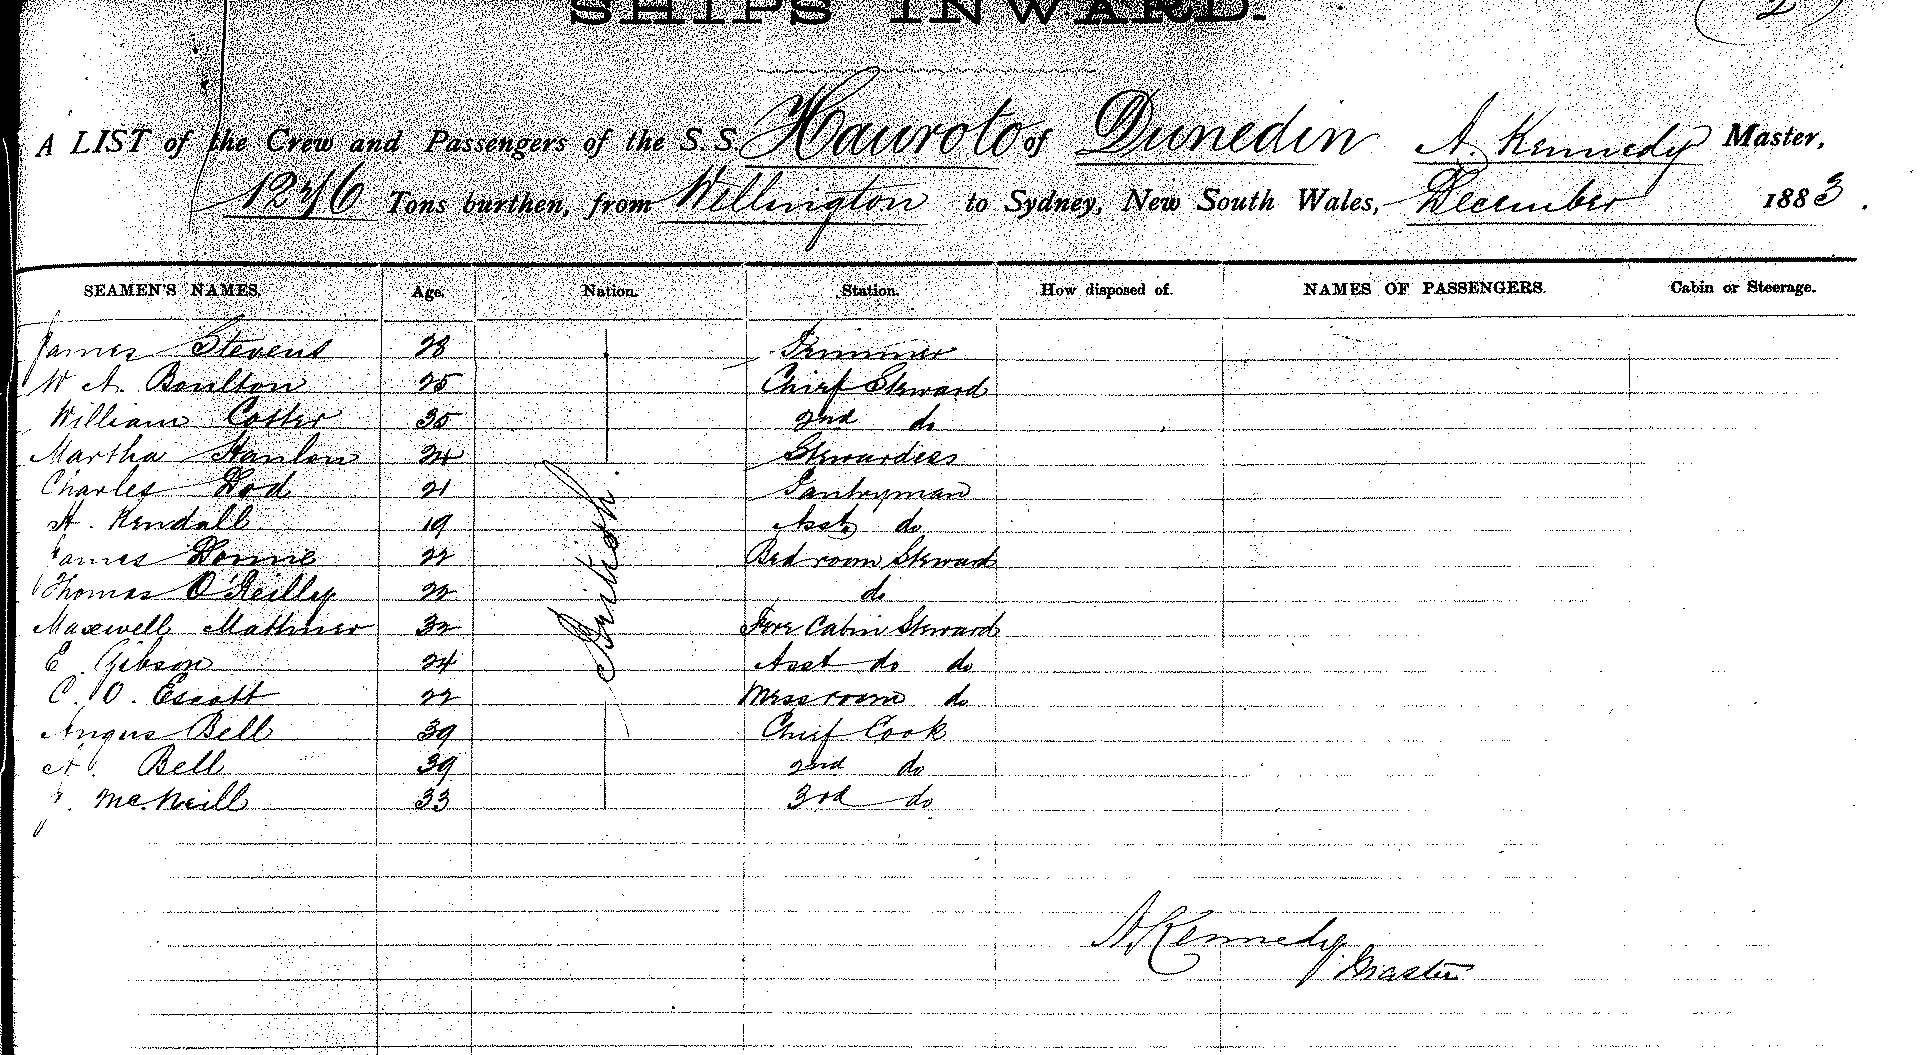 SHIPS INWARD.
2
A LIST of the Crew and Passengers of the S. S. Hauroto of Dunedin A. Kennedy Master,
1276 Tons burthen, from Wellington to Sydney, New South Wales, December 1883.
SEAMEN'S NAMES. Age. Nation. Station. How disposed of. NAMES OF PASSENGERS. Cabin or Steerage.
James Stevens 28 Trimmer
W A. Boulton 25 Chief Steward
William Cotter 35 2nd do
Martha Hanlon 24 Stewardess
Charles Dod 21 Pantryman
A. Kendall 19 Asst do
James Donne 22 Bed room Steward
Thomas O'Reilly 22 do
British.
Maxwell 32 Fore Cabin Steward
E. Gibson 24 Asst do do
C. O. Escott 22 Mess room do
Angus Bell 39 Chief Cook
A. Bell 39 2nd do
J. McNeill 33 3rd do
A. Kennedy
Master